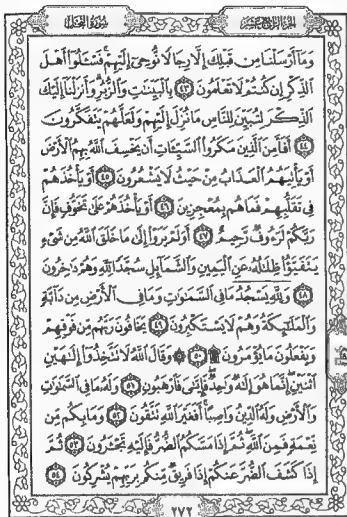 الجزء الرابع عشر سورة النحل
وَمَآ أَرۡسَلۡنَا مِن قَبۡلِكَ إِلَّا رِجَالٗا نُّوحِيٓ إِلَيۡهِمۡۖ فَسۡـَٔلُوٓاْ أَهۡلَ
ٱلذِّكۡرِ إِن كُنتُمۡ لَا تَعۡلَمُونَ ٤٣ بِٱلۡبَيِّنَٰتِ وَٱلزُّبُرِۗ وَأَنزَلۡنَآ إِلَيۡكَ
ٱلذِّكۡرَ لِتُبَيِّنَ لِلنَّاسِ مَا نُزِّلَ إِلَيۡهِمۡ وَلَعَلَّهُمۡ يَتَفَكَّرُونَ
٤٤ أَفَأَمِنَ ٱلَّذِينَ مَكَرُواْ ٱلسَّيِّـَٔاتِ أَن يَخۡسِفَ ٱللَّهُ بِهِمُ ٱلۡأَرۡضَ
أَوۡ يَأۡتِيَهُمُ ٱلۡعَذَابُ مِنۡ حَيۡثُ لَا يَشۡعُرُونَ ٤٥ أَوۡ يَأۡخُذَهُمۡ
فِي تَقَلُّبِهِمۡ فَمَا هُم بِمُعۡجِزِينَ ٤٦ أَوۡ يَأۡخُذَهُمۡ عَلَىٰ تَخَوُّفٖ فَإِنَّ
رَبَّكُمۡ لَرَءُوفٞ رَّحِيمٌ ٤٧ أَوَلَمۡ يَرَوۡاْ إِلَىٰ مَا خَلَقَ ٱللَّهُ مِن شَيۡءٖ
يَتَفَيَّؤُاْ ظِلَٰلُهُۥ عَنِ ٱلۡيَمِينِ وَٱلشَّمَآئِلِ سُجَّدٗا لِّلَّهِ وَهُمۡ دَٰخِرُونَ
٤٨ وَلِلَّهِۤ يَسۡجُدُۤ مَا فِي ٱلسَّمَٰوَٰتِ وَمَا فِي ٱلۡأَرۡضِ مِن دَآبَّةٖ
وَٱلۡمَلَٰٓئِكَةُ وَهُمۡ لَا يَسۡتَكۡبِرُونَ ٤٩ يَخَافُونَ رَبَّهُم مِّن فَوۡقِهِمۡ
وَيَفۡعَلُونَ مَا يُؤۡمَرُونَ ۩ ٥٠ ۞ وَقَالَ ٱللَّهُ لَا تَتَّخِذُوٓاْ إِلَٰهَيۡنِ
ٱثۡنَيۡنِۖ إِنَّمَا هُوَ إِلَٰهٞ وَٰحِدٞ فَإِيَّٰيَ فَٱرۡهَبُونِ ٥١ وَلَهُۥ مَا فِي ٱلسَّمَٰوَٰتِ
وَٱلۡأَرۡضِ وَلَهُ ٱلدِّينُ وَاصِبًاۚ أَفَغَيۡرَ ٱللَّهِ تَتَّقُونَ ٥٢ وَمَا بِكُم مِّن
نِّعۡمَةٖ فَمِنَ ٱللَّهِۖ ثُمَّ إِذَا مَسَّكُمُ ٱلضُّرُّ فَإِلَيۡهِ تَجۡـَٔرُونَ ٥٣ ثُمَّ
إِذَا كَشَفَ ٱلضُّرَّ عَنكُمۡ إِذَا فَرِيقٞ مِّنكُم بِرَبِّهِمۡ يُشۡرِكُونَ ٥٤
٢٧٢